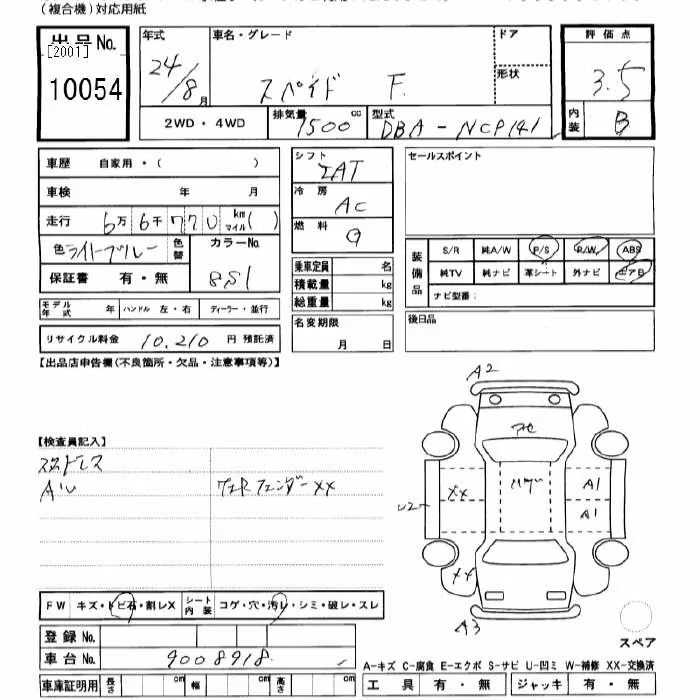 (複合機)対応用紙
出品No.
[2001]
10054
年式
24/8月
車名・グレード
スペイド F
ドア
形状
評価点
3.5
内装
B
2WD・4WD
排気量
1500cc
型式
DBA-NCP141
車歴 自家用・( )
車検 年 月
走行 6万6千770 km マイル( )
色 ライトブルー 色替
カラーNo.
8S1
保証書 有・無
モデル年式 年 ハンドル 左・右 ディーラー・並行
リサイクル料金 10,210 円 預託済
シフト
IAT
冷房
AC
燃料
G
乗車定員 名
積載量 kg
総重量 kg
名変期限
月 日
セールスポイント
装備品
S/R 純A/W P/S P/W ABS
純TV 純ナビ 革シート 外ナビ エアB
ナビ型番:
後日品
【出品店申告欄(不良箇所・欠品・注意事項等)】
【検査員記入】
スタッドレス
A2
XX
A1
A1
U2
XX
A3
FW キズ・トビ石・割レX
シート内装 コゲ・穴・汚レ・シミ・破レ・スレ
登録No.
車台No. 9008918
車庫証明用 長さ cm 幅 cm 高さ cm
スペア
A-キズ C-腐食 E-エクボ S-サビ U-凹ミ W-補修 XX-交換済
工具 有・無 ジャッキ 有・無